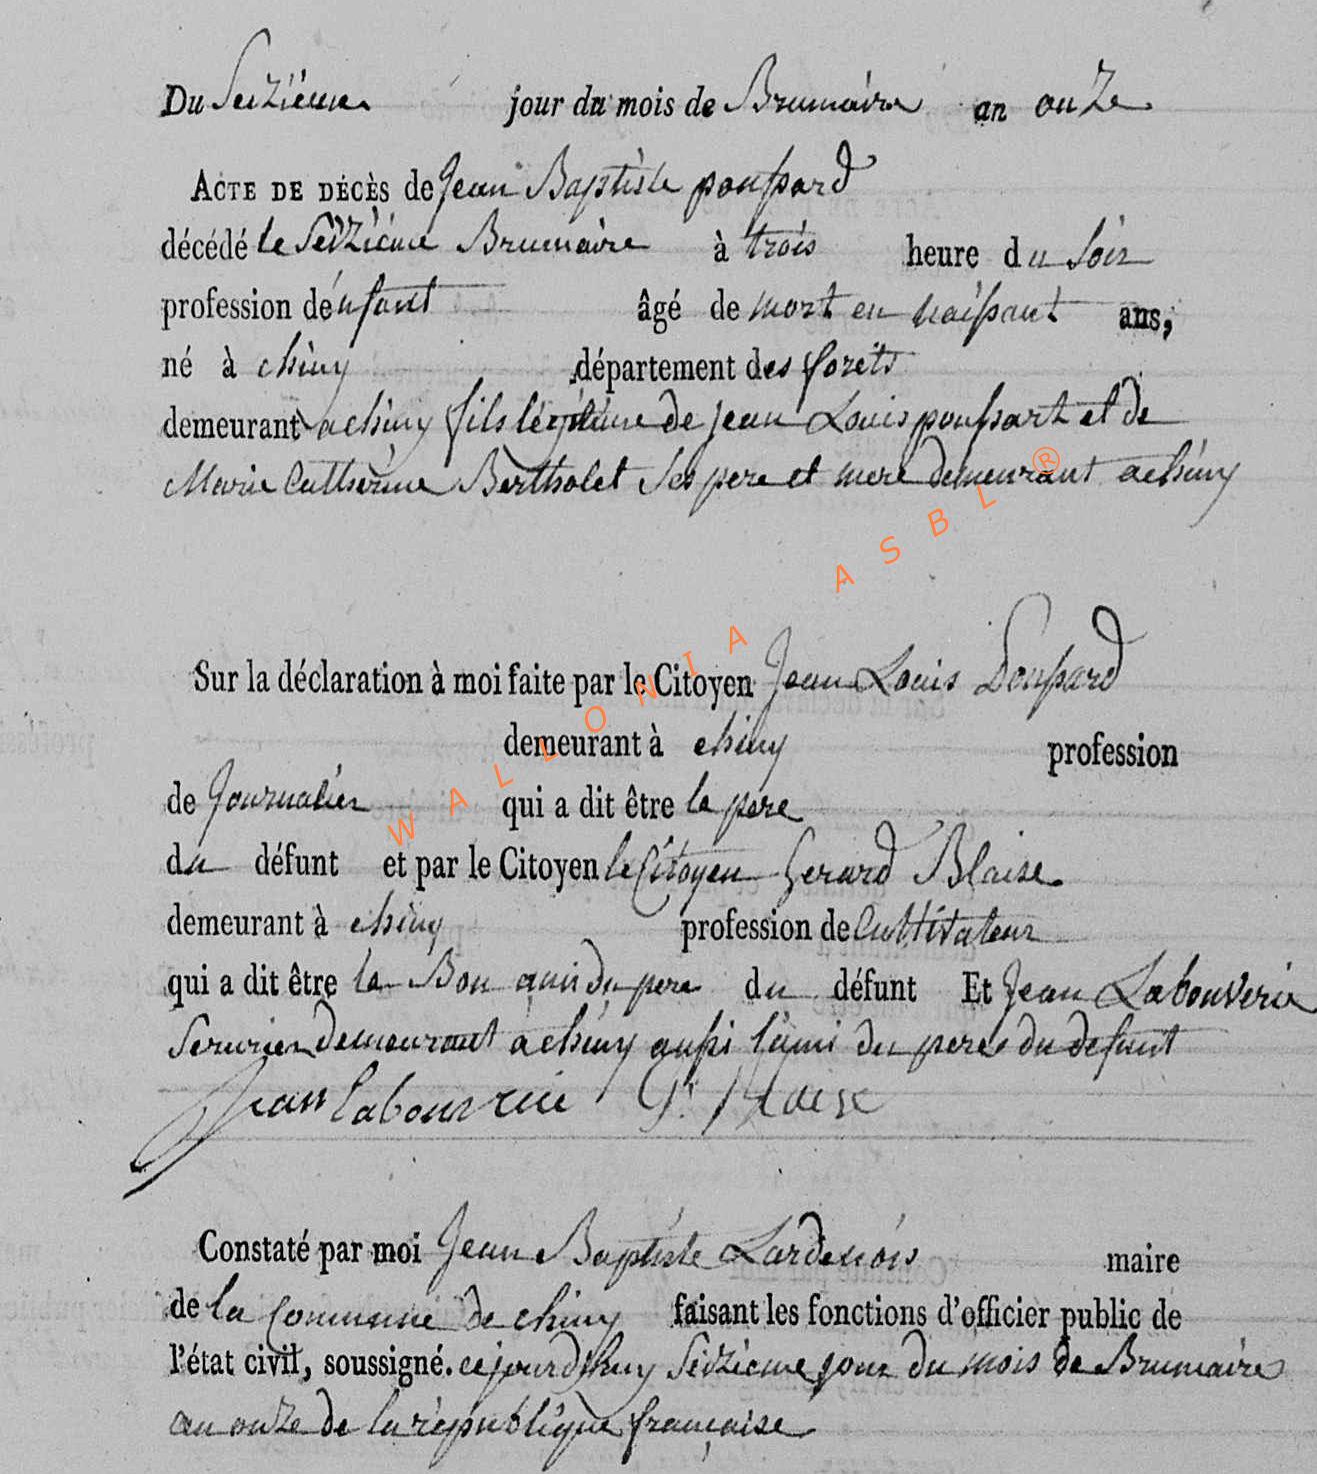 Du Seizieme jour du mois de Brumaire an onze
ACTE DE DÉCÈS de Jean Baptiste poussard
décédé le Seizieme Brumaire à trois heure du soir
profession d'énfant âgé de mort en naissant ans,
né à chiny département des forêts
demeurant a chiny fils légitime de jean Louis poussart et de
Marie Catherine Bertholet Ses pere et mere demeurant a chiny
Sur la déclaration à moi faite par le Citoyen Jean Louis Poussard
demeurant à chiny profession
de Journalier qui a dit être le pere
du défunt et par le Citoyen le Citoyen Gerard Blaise
demeurant à chiny profession de Cultivateur
qui a dit être le Bon ami du pere du défunt Et Jean Labouverie
Serurier demeurant à chiny aussi l'ami du pere du defunt
Jean Labouverie G. Blaise
Constaté par moi Jean Baptiste Lardenois maire
de la Commune de chiny faisant les fonctions d'officier public de
l'état civil, soussigné. cejourdhuy Seizieme jour du mois de Brumaire
an onze de la république française
WALLONIA ASBL ®